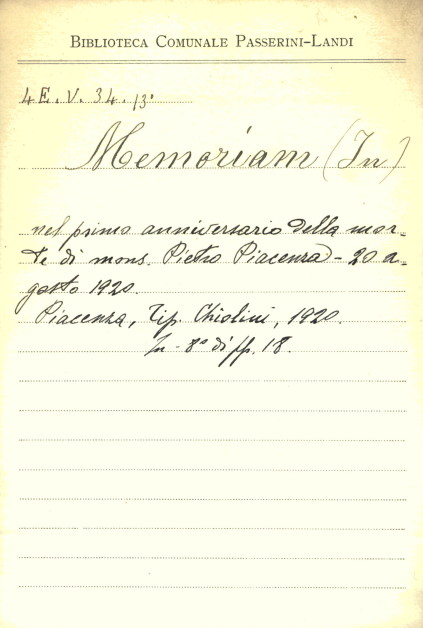 BIBLIOTECA COMUNALE PASSERINI-LANDI
4 E. V. 34. 13.
Memoriam (In)
nel primo anniversario della mor-
te di mons. Pietro Piacenza - 20 a-
gosto 1920.
Piacenza, Tip. Chiolini, 1920.
In - 8° di pp. 18.